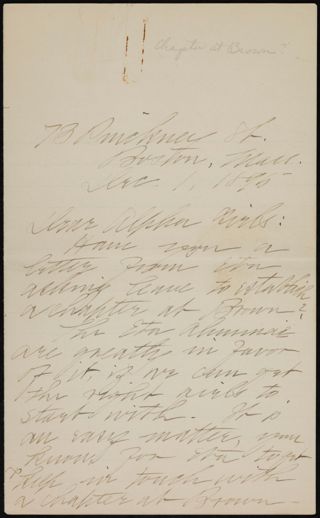 Chapter at Brown?
73 Pinckney St.
Boston, Mass.
Dec. 1, 1895
Dear Alpha Girls:
Have you a
letter from Eta
asking leave to establish
a chapter at Brown?
The Eta Alumnae
are greatly in favor
of it, if we can get
the right girls to
start with. It is
an easy matter, you
know for Eta to get
& keep in touch with
a chapter at Brown -